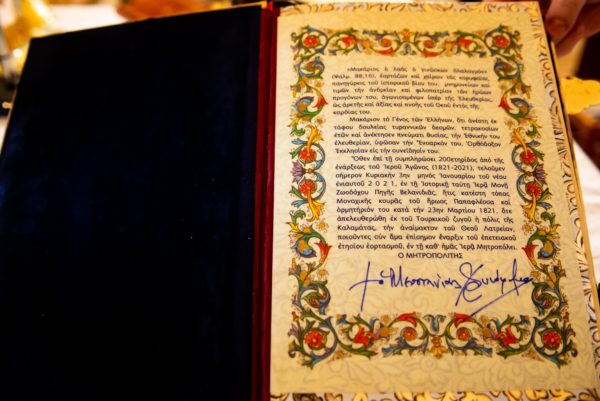 «Μακάριος ὁ λαὸς ὁ γινώσκων ἀλαλαγμόν»
(Ψαλμ. 88,16), ἑορτάζων καὶ χαίρων τὰς κορυφαίας,
πανηγύρεις τοῦ ἱστορικοῦ βίου του, μνημονεύων καὶ
τιμῶν τὴν ἀνδρείαν καὶ φιλοπατρίαν τῶν ἡρώων
προγόνων του, ἀγωνισαμένων ὑπὲρ τῆς Ἐλευθερίας,
ὡς ἀρετῆς καὶ ἀξίας καὶ πνοῆς τοῦ Θεοῦ ἐντὸς τῆς
καρδίας του.
Μακάριον τὸ Γένος τῶν Ἑλλήνων, ὅτι ἀνέστη ἐκ
τάφου δουλείας τυραννικῶν δεσμῶν, τετρακοσίων
ἐτῶν καὶ ἀνέκτησεν πνεύματι θυσίας, τὴν Ἐθνικήν του
ἐλευθερίαν, ὑψῶσαν τὴν Ἔνσαρκόν του, Ὀρθόδοξον
Ἐκκλησίαν εἰς τὴν συνείδησίν του.
Ὅθεν ἐπὶ τῇ συμπληρώσει 200ετηρίδος ἀπὸ τῆς
ἐνάρξεως τοῦ Ἱεροῦ Ἀγῶνος (1821-2021), τελοῦμεν
σήμερον Κυριακὴν 3ην μηνὸς Ἰανουαρίου τοῦ νέου
ἐνιαυτοῦ 2021, ἐν τῇ Ἱστορικῇ ταύτῃ Ἱερᾷ Μονῇ
Ζωοδόχου Πηγῆς Βελανιδιᾶς, ἥτις κατέστη τόπος
Μοναχικῆς κουρᾶς τοῦ ἥρωος Παπαφλέσσα καὶ
ὁρμητήριόν του κατὰ τὴν 23ην Μαρτίου 1821, ὅτε
ἀπελευθερώθη ἐκ τοῦ Τουρκικοῦ ζυγοῦ ἡ πόλις τῆς
Καλαμάτας, τὴν ἀναίμακτον τοῦ Θεοῦ Λατρείαν,
ποιοῦντες σὺν ἅμα ἐπίσημον ἔναρξιν τοῦ ἐπετειακοῦ
ἐτησίου ἑορτασμοῦ, ἐν τῇ καθ' ἡμᾶς Ἱερᾷ Μητροπόλει.
Ο ΜΗΤΡΟΠΟΛΙΤΗΣ
ὁ Μεσσηνίας